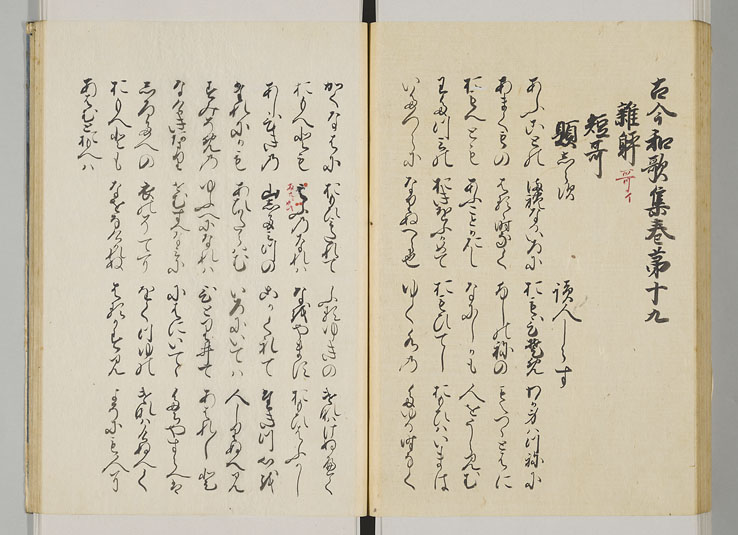 古今和歌集巻第十九
雑躰
短哥
題しらす
読人しらす
あふことの まれなるいろに おもひそめ わか身はつねに
あまくもの はるゝ時なく ふしのねの もえつゝとはに
おもへとも あふことかたし なにしかも 人をうらみむ
わたつみの おきをふかめて おもひてし おもひはいまは
いたつらに なりぬへら也 ゆく水の たゆる時なく
かくなはに おもひみたれて ふるゆきの けなはけぬへく
おもへとも えふの身なれは なをやます おもひはふかし
あしひきの 山した水の こかくれて たきつ心を
たれにかも あひかたらはむ いろにいては 人しりぬへみ
すみそめの ゆふへになれは ひとりゐて あはれ〳〵と
なけきあまり せむすへなみに にはにいてゝ たちやすらへは
しろたへの 衣のそてに をくつゆの けなはけぬへく
おもへとも なをなけかれぬ はるかすみ よそにも人に
あはむとおもへは